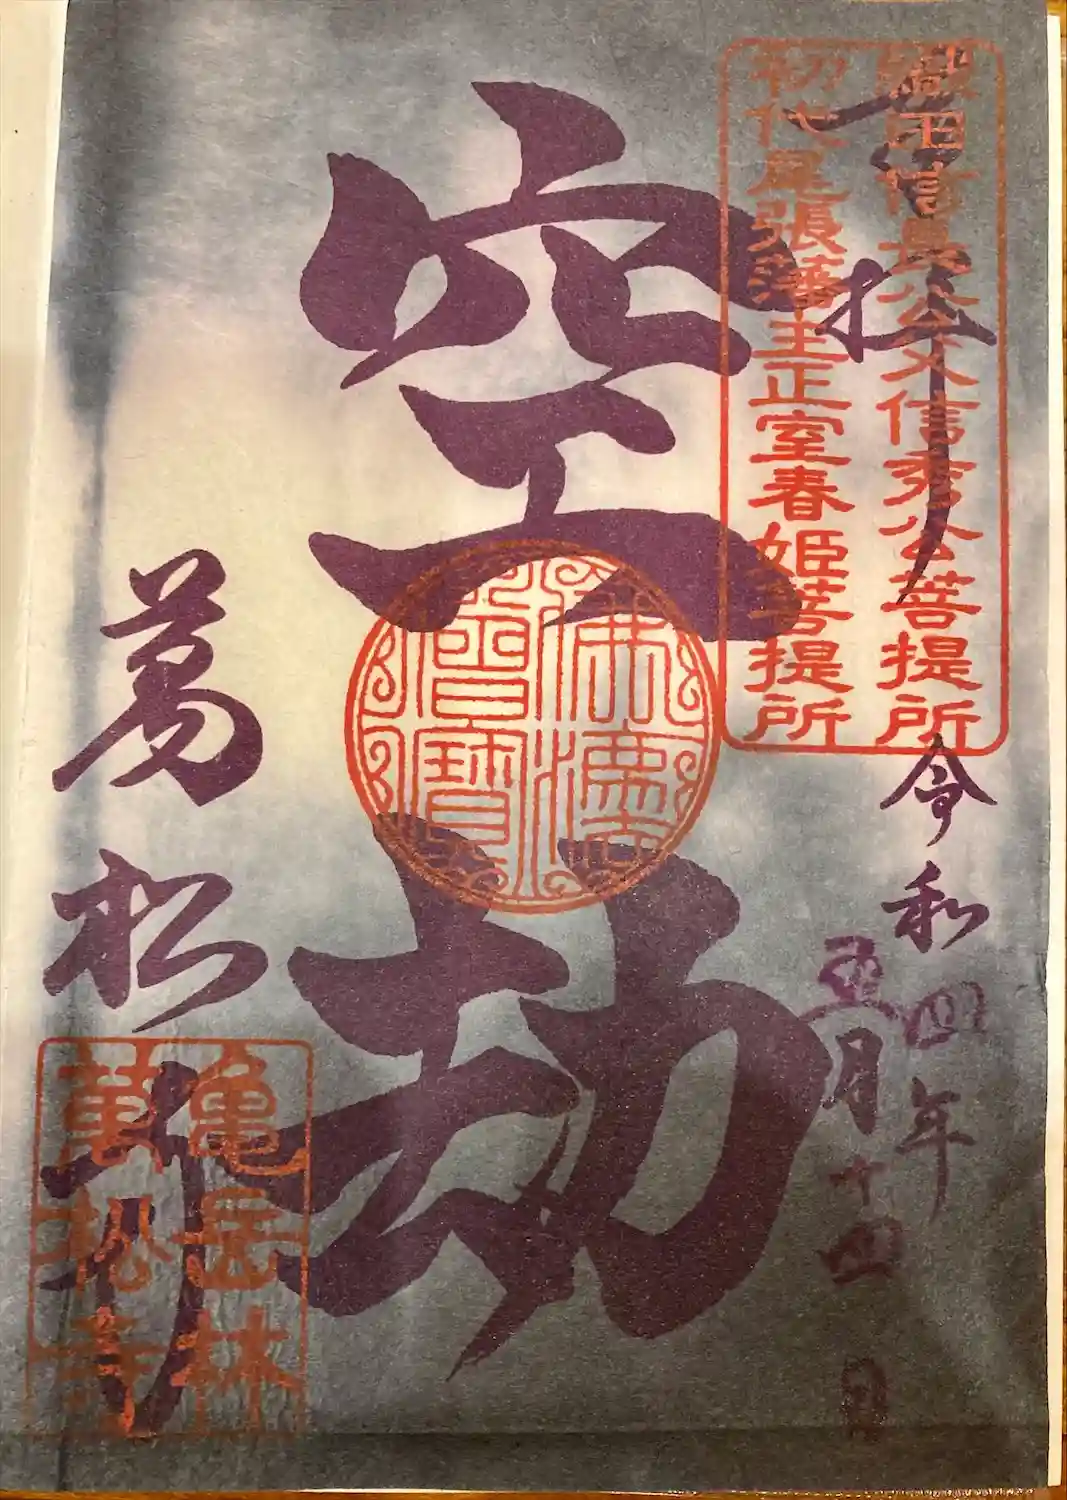 奉拝
織田信長公父信秀公菩提所
初代尾張藩主正室春姫菩提所
令和四年
五月十四日
空劫
佛法僧寶
萬松寺
亀岳林
萬松寺